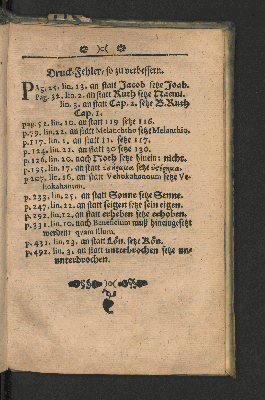 Druck-Fehler, so zu verbessern.
PAg. 25. lin. 13. an statt Jacob setze Joab.
Pag. 32. lin. 2. an statt Ruth setze Naemi.
lin. 3. an statt Cap. 2. setze B. Ruth
Cap. 1.
pag. 52. lin. 10. an statt 119 setze 116.
p. 79. lin. 22. an statt Melanchtho setze Melanchio.
p. 117. lin. 1. an statt 11. setze 117.
p. 124. lin. 21. an statt 30 setze 130.
p. 126. lin. 20. nach Noth setze hinein: nicht.
p. 195. lin. 17. an statt setze
p. 207. lin. 16. an statt Vehokahanoum setze Ve-
hokahanum.
p. 233. lin. 25. an statt Sonne setze Senne.
p. 247. lin. 22. an statt seigen setze sein eigen.
p. 292. lin. 12. an statt erheben setze erhoben.
p. 331. lin. 10. nach Beneficium muß hineingesetzt
werden: quam illum.
p. 431. lin. 23. an statt Lön. setze Kön.
p. 492. lin. 3. an statt unterbrochen setze un-
unterbrochen.